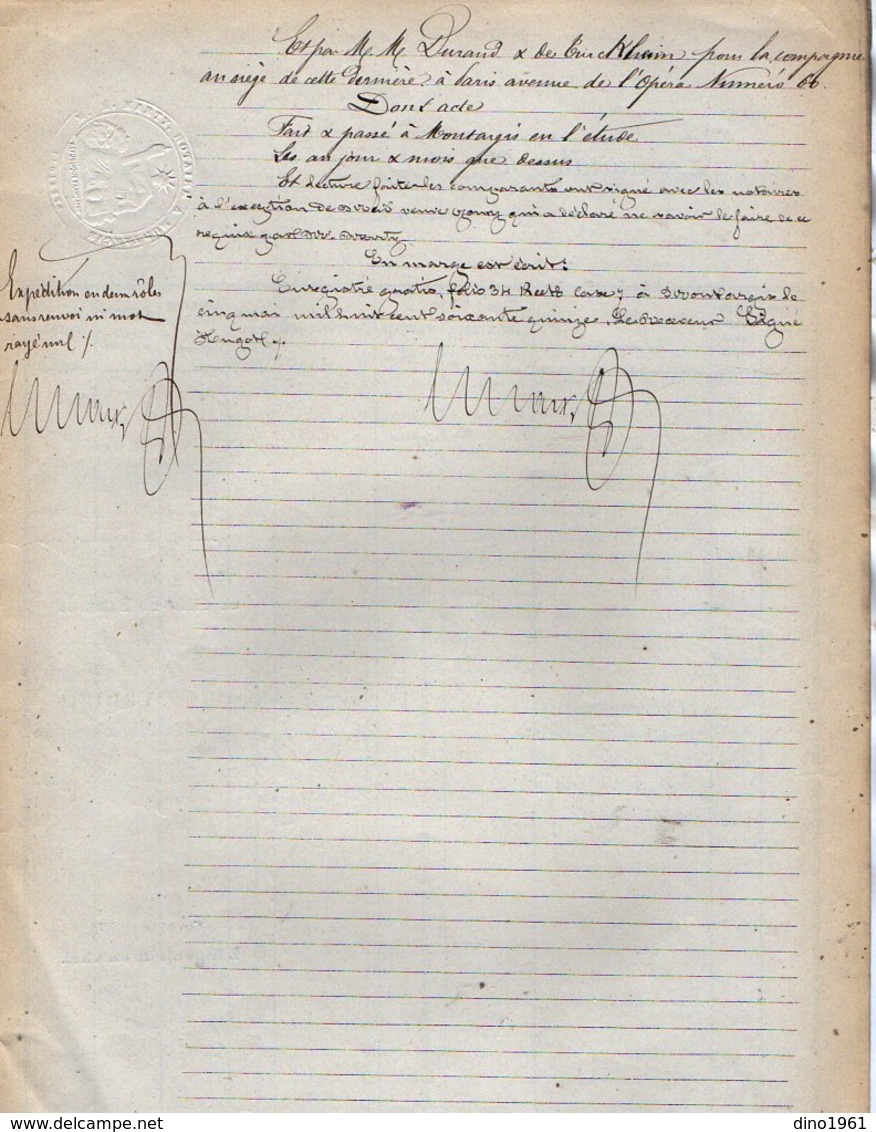 Et par M. M. Durand & de Turckheim pour la compagnie
au siège de cette dernière à Paris avenue de l'Opéra Numéro 66.
Dont acte
Fait & passé à Montargis en l'étude
Les an jour & mois que dessus
Et lecture faite les comparants ont signé avec les notaires
à l'exception de veuve qui a déclaré ne savoir le faire de ce
requise par
En marge est écrit :
Enregistré folio 34 Recto case 7 à Montargis le
cinq mai mil huit cent soixante quinze. Le Receveur Signé
Hugot
Expédition en deux rôles
sans renvoi ni mot
rayé nul ./.
delcampe.net
dino1961